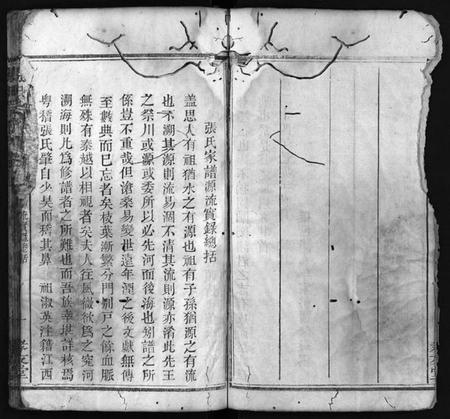 張氏家譜源流實錄總括
盖思人有祖猶水之有源也祖有子孫猶源之有流
也不溯其源則流易涸不清其流則源亦淆此先王
之祭川或源或委所以必先河而後海也矧譜之所
係豈不重哉但滄桑易變世遠年湮之後文獻無傳
至數典而已忘者矣枝葉漸繁分門別戸之餘血脈
無殊有秦越以相視者矣夫人往風微欲為之窮河
溯海則凡為修譜者之所難也而吾族幸世詳核焉
粤稽張氏肇自少昊而稱其鼻 祖淑英注籍江西